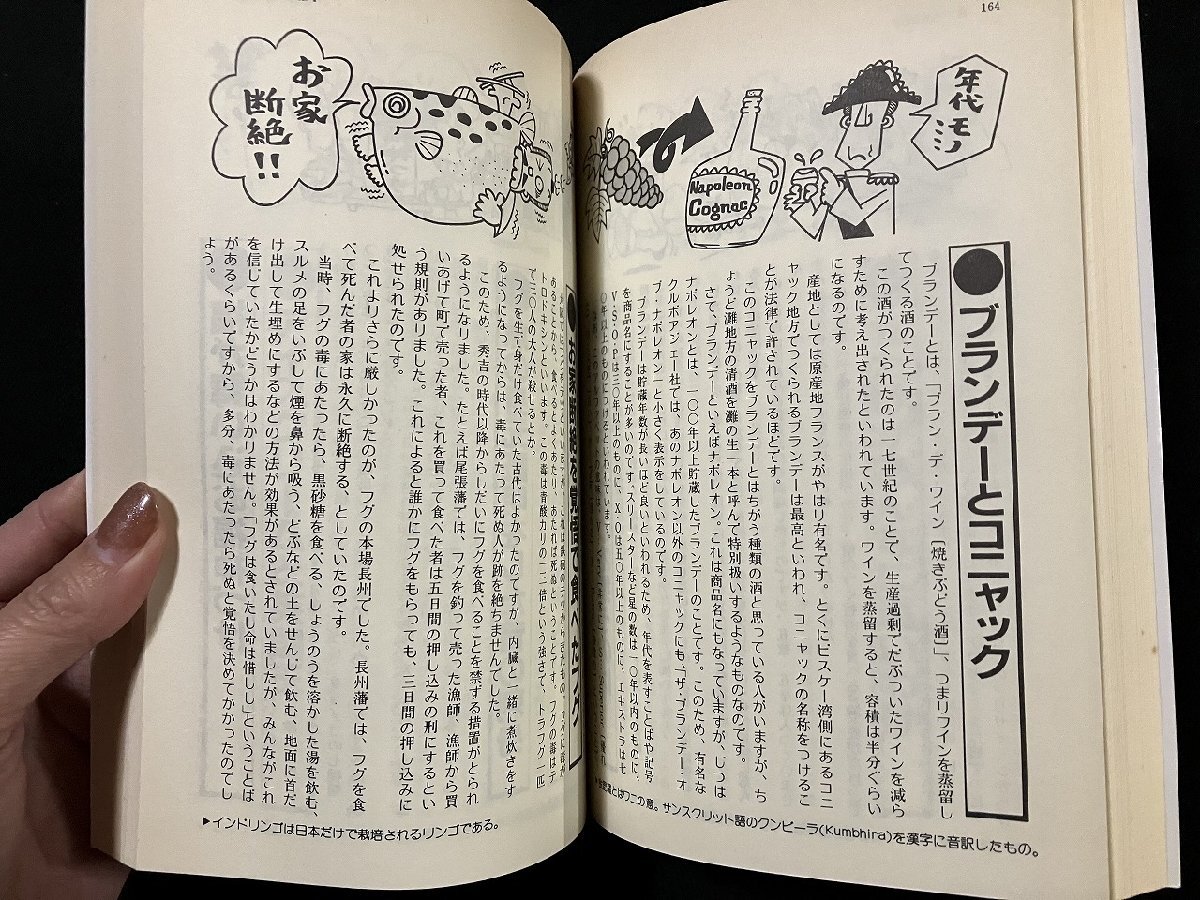 164
年代モノ
ミ
Napoleon
Cognac
●ブランデーとコニャック
ブランデーとは、「ブラン・デ・ワイン［焼きぶどう酒］」、つまりワインを蒸留し
てつくる酒のことです。
この酒がつくられたのは一七世紀のことで、生産過剰でだぶついたワインを減ら
すために考え出されたといわれています。ワインを蒸留すると、容積は半分ぐらい
になるのです。
産地としては原産地フランスがやはり有名です。とくにビスケー湾側にあるコニ
ャック地方でつくられるブランデーは最高といわれ、コニャックの名称をつけるこ
とが法律で許されているほどです。
このコニャックをブランデーとはちがう種類の酒と思っている人がいますが、ち
ょうど灘地方の清酒を灘の生一本と呼んで特別扱いするようなものなのです。
さて、ブランデーといえばナポレオン。これは商品名にもなっていますが、じつは
ナポレオンとは、一〇〇年以上貯蔵したブランデーのことです。このため、有名な
クルボアジェー社では、あのナポレオン以外のコニャックにも「ザ・ブランデー・オ
ブ・ナポレオン」と小さく表示をしているのです。
ブランデーは貯蔵年数が長いほど良いといわれるため、年代を表すことばや記号
を商品名にすることが多いのです。スリースターなど星の数は一〇年以内のものに、
V・S・O・Pは三〇年以上のものに、X・Oは五〇年以上のものに、エキストラは七
〇年以上のものにつけるといわれています。
とはワニの意。サンスクリット語のクンビーラ(Kumbhira)を漢字に音訳したもの。
お家
断絶!!
●お家断絶を覚悟で食べたフグ
あることから、食べるとよくあたり、あたれば死ぬということです。フグの毒はテ
トロドキシンといいます。この毒は青酸カリの一二倍という強さで、トラフグ一匹
で三〇人の大人が殺せるとか。
フグを生で身だけ食べていた古代はよかったのですが、内臓と一緒に煮炊きをす
るようになってからは、毒にあたって死ぬ人が跡を絶ちませんでした。
このため、秀吉の時代以降からしだいにフグを食べることを禁ずる措置がとられ
るようになりました。たとえば尾張藩では、フグを釣って売った漁師、漁師から買
いあげて町で売った者、これを買って食べた者は五日間の押し込みの刑にするとい
う規則がありました。これによると誰かにフグをもらっても、三日間の押し込みに
処せられたのです。
これよりさらに厳しかったのが、フグの本場長州でした。長州藩では、フグを食
べて死んだ者の家は永久に断絶する、としていたのです。
当時、フグの毒にあたったら、黒砂糖を食べる、しょうのうを溶かした湯を飲む、
スルメの足をいぶして煙を鼻から吸う、どぶなどの土をせんじて飲む、地面に首だ
け出して生埋めにするなどの方法が効果があるとされていましたが、みんながこれ
を信じていたかどうかはわかりません。「フグは食いたし命は惜しし」ということば
があるくらいですから、多分、毒にあたったら死ぬと覚悟を決めてかかったのでし
ょう。
▶インドリンゴは日本だけで栽培されるリンゴである。